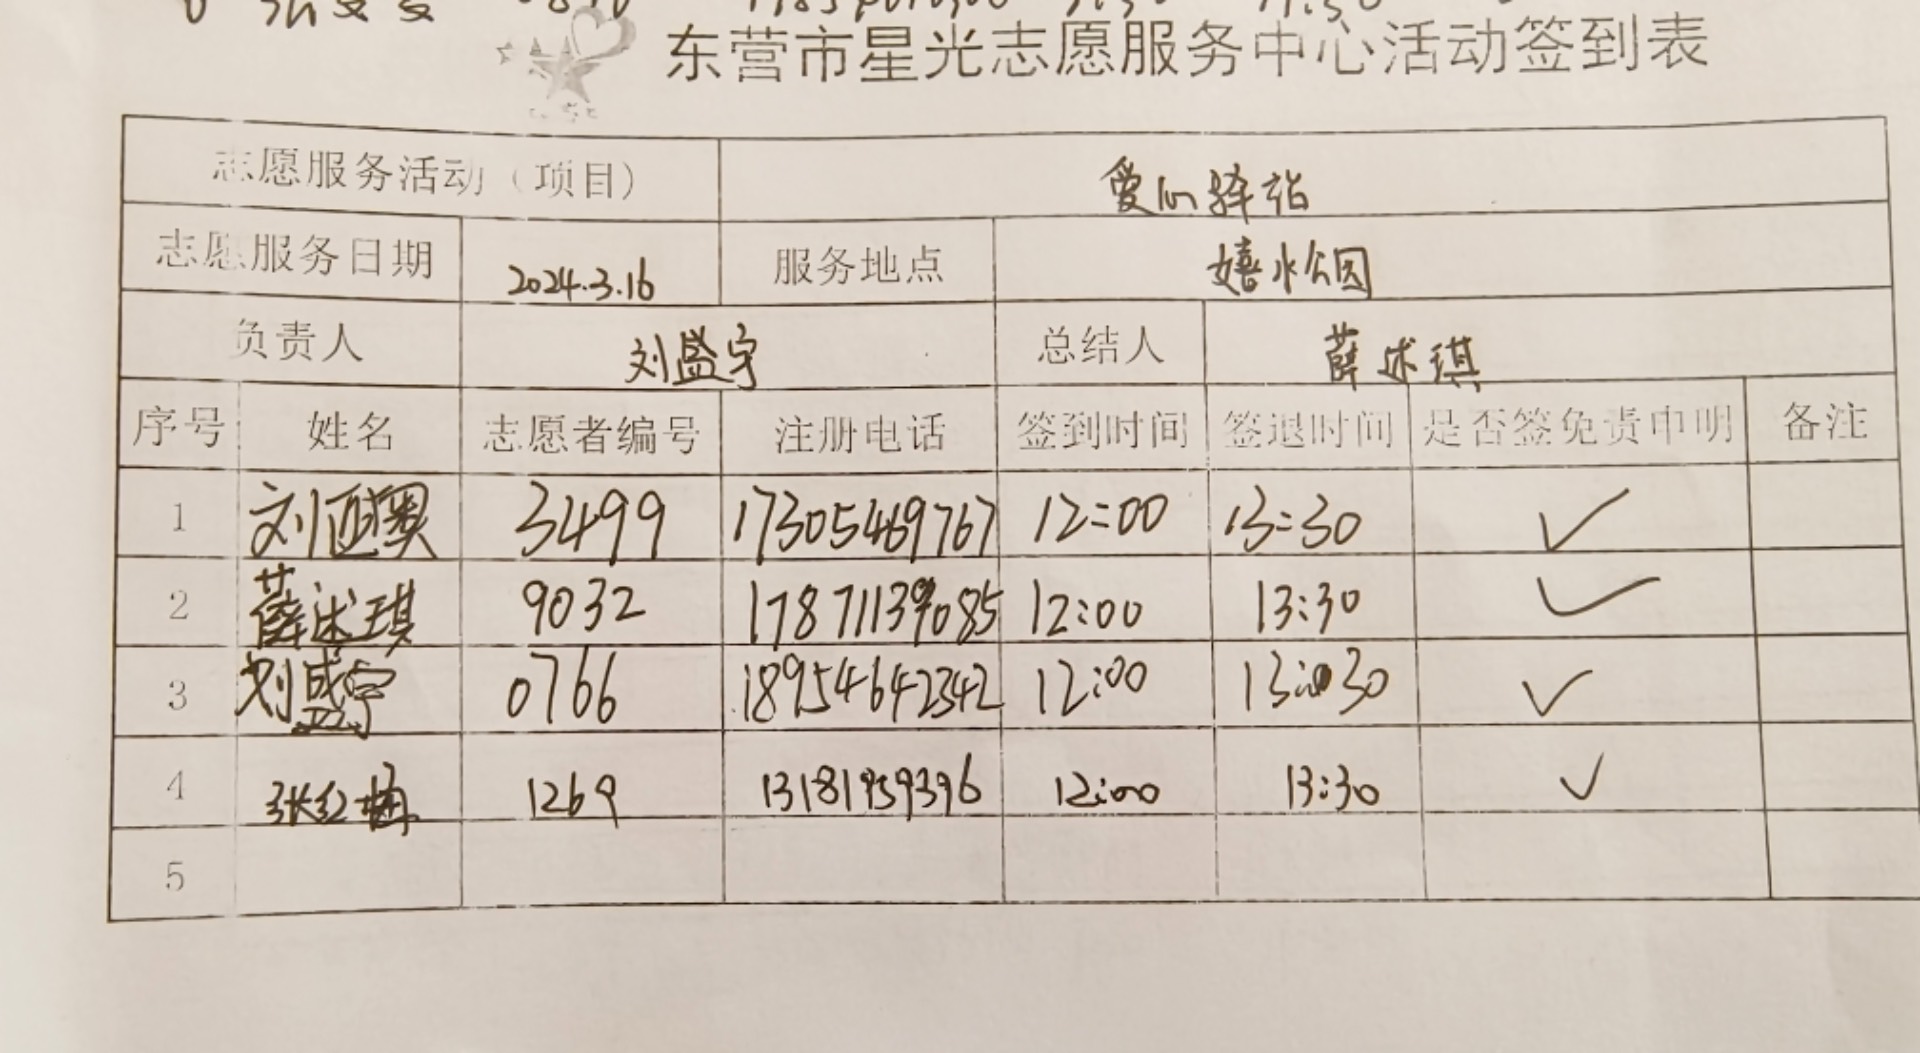 东营市星光志愿服务中心活动签到表
志愿服务活动（项目） 爱心驿站
志愿服务日期 2024.3.16 服务地点 嬉水公园
负责人 刘盛宇 总结人 薛述琪
序号 姓名 志愿者编号 注册电话 签到时间 签退时间 是否签免责申明 备注
1 刘 3499 17305469767 12:00 13:30 ✓
2 薛述琪 9032 17871139085 12:00 13:30 ✓
3 刘盛宇 0766 18954642342 12:00 13:30 ✓
4 张红梅 1269 13181959396 12:00 13:30 ✓
5